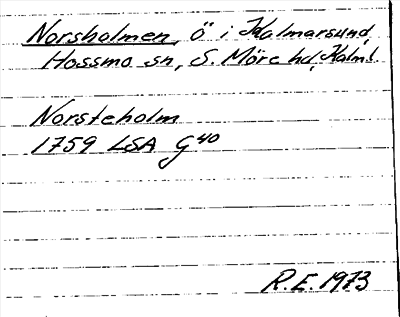 Norsholmen, ö i Kalmarsund,
Hossmo sn, S. Möre hd, Kalm.l.
Norsteholm
1759 LSA G40
R.E. 1973